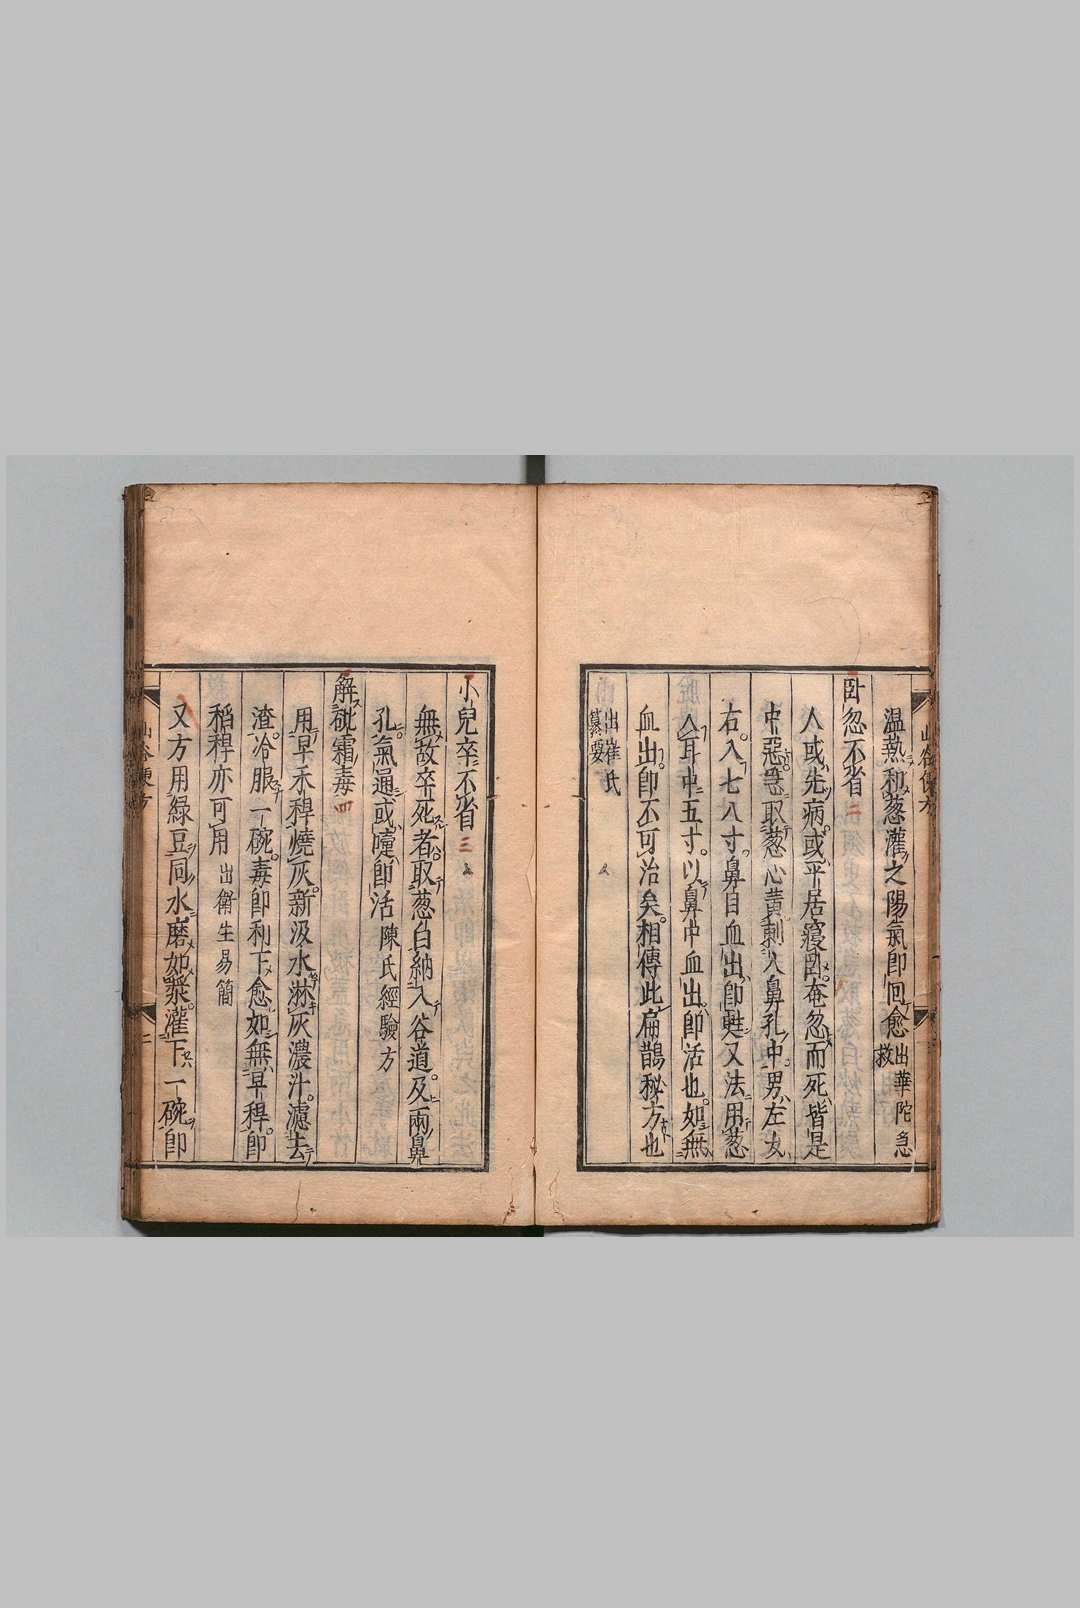 温熱和葱灌之陽氣即回愈出華陀急救
卧忽不省 二
人或先病或平居寝卧奄忽而死皆是
中惡急取葱心黄刺入鼻孔中男左女
右入七八寸鼻目血出即甦又法用葱
入耳中五寸以鼻中血出即活也如無
血出即不可治矣相傳此扁鵲秘方也
出崔氏
纂要
小兒卒不省 三
無故卒死者取葱白納入谷道及兩鼻
孔氣通或嚏即活陳氏經驗方
解砒霜毒 四
用早禾稈燒灰新汲水淋灰濃汁濾去
渣冷服一碗毒即利下愈如無早稈即
稻稈亦可用 出衛生易簡
又方用緑豆同水磨如漿灌下一碗即